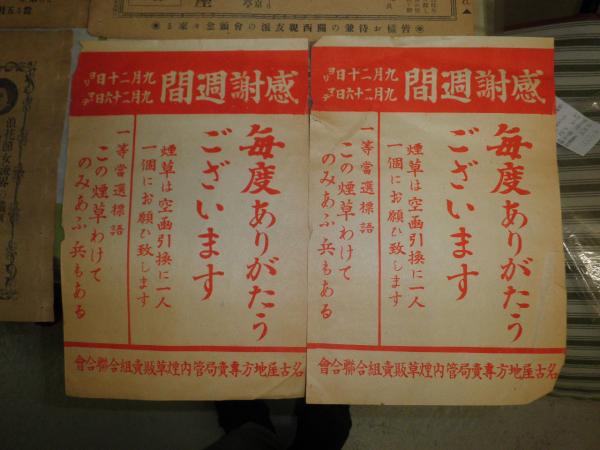 皆樣お待兼の關西親友派の會願念々來る
感謝週間
九月二十日ヨリ
九月二十六日マデ
毎度ありがたう
ございます
煙草は空函引換に一人
一個にお願ひ致します
一等當選標語
この煙草わけて
のみあふ兵もある
名古屋地方專賣局管內煙草販賣組合聯合會
感謝週間
九月二十日ヨリ
九月二十六日マデ
毎度ありがたう
ございます
煙草は空函引換に一人
一個にお願ひ致します
一等當選標語
この煙草わけて
のみあふ兵もある
名古屋地方專賣局管內煙草販賣組合聯合會